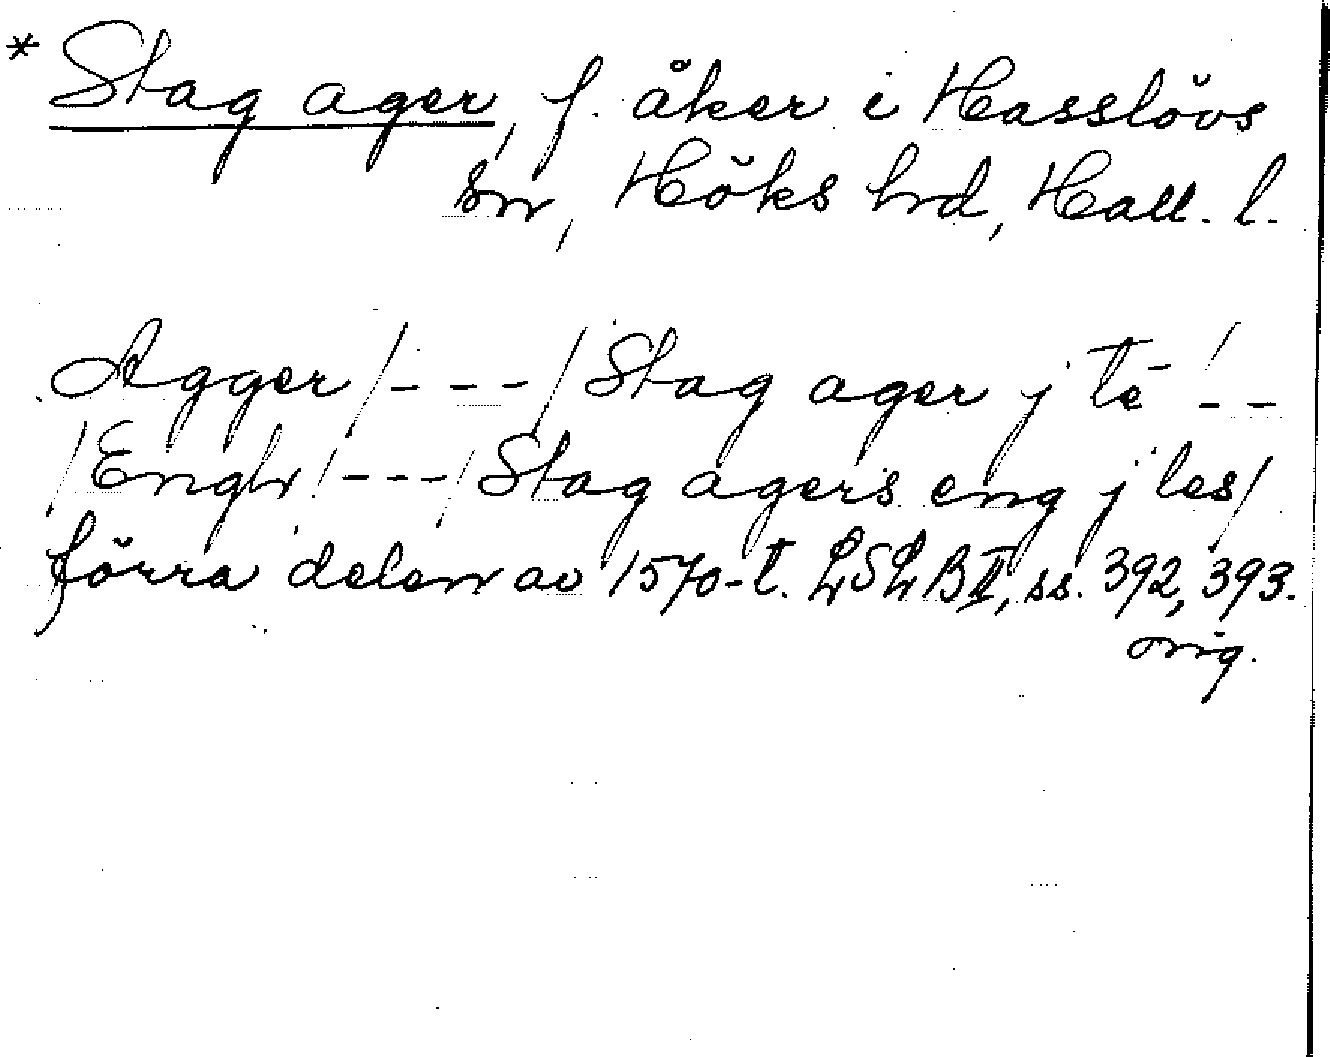 * Stag ager, f. åker i Hasslövs
sn, Höks hrd, Hall. l.
Agger /---/ Stag ager j tē /--
/ Engh /---/ Stag agers eng j les /
förra delen av 1570-t. LSLB II, ss. 392, 393.
orig.